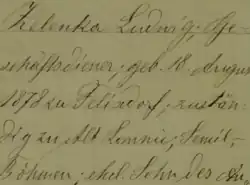 Zelenka Ludwig, Ge-
schäftsdiener, geb. 18. Augus
1878 zu Felixdorf, zustän-
dig zu Alt Lomnic, Semil,
Böhmen, ehel. Sohn des